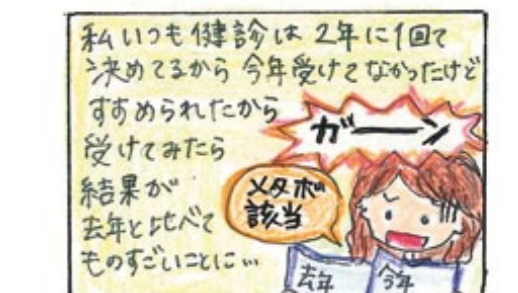 私いつも健診は2年に1回て
決めてるから今年受けてなかったけど
すすめられたから
受けてみたら
結果が
去年と比べて
ものすごいことに…
ガーン
メタボ
該当
去年
今年